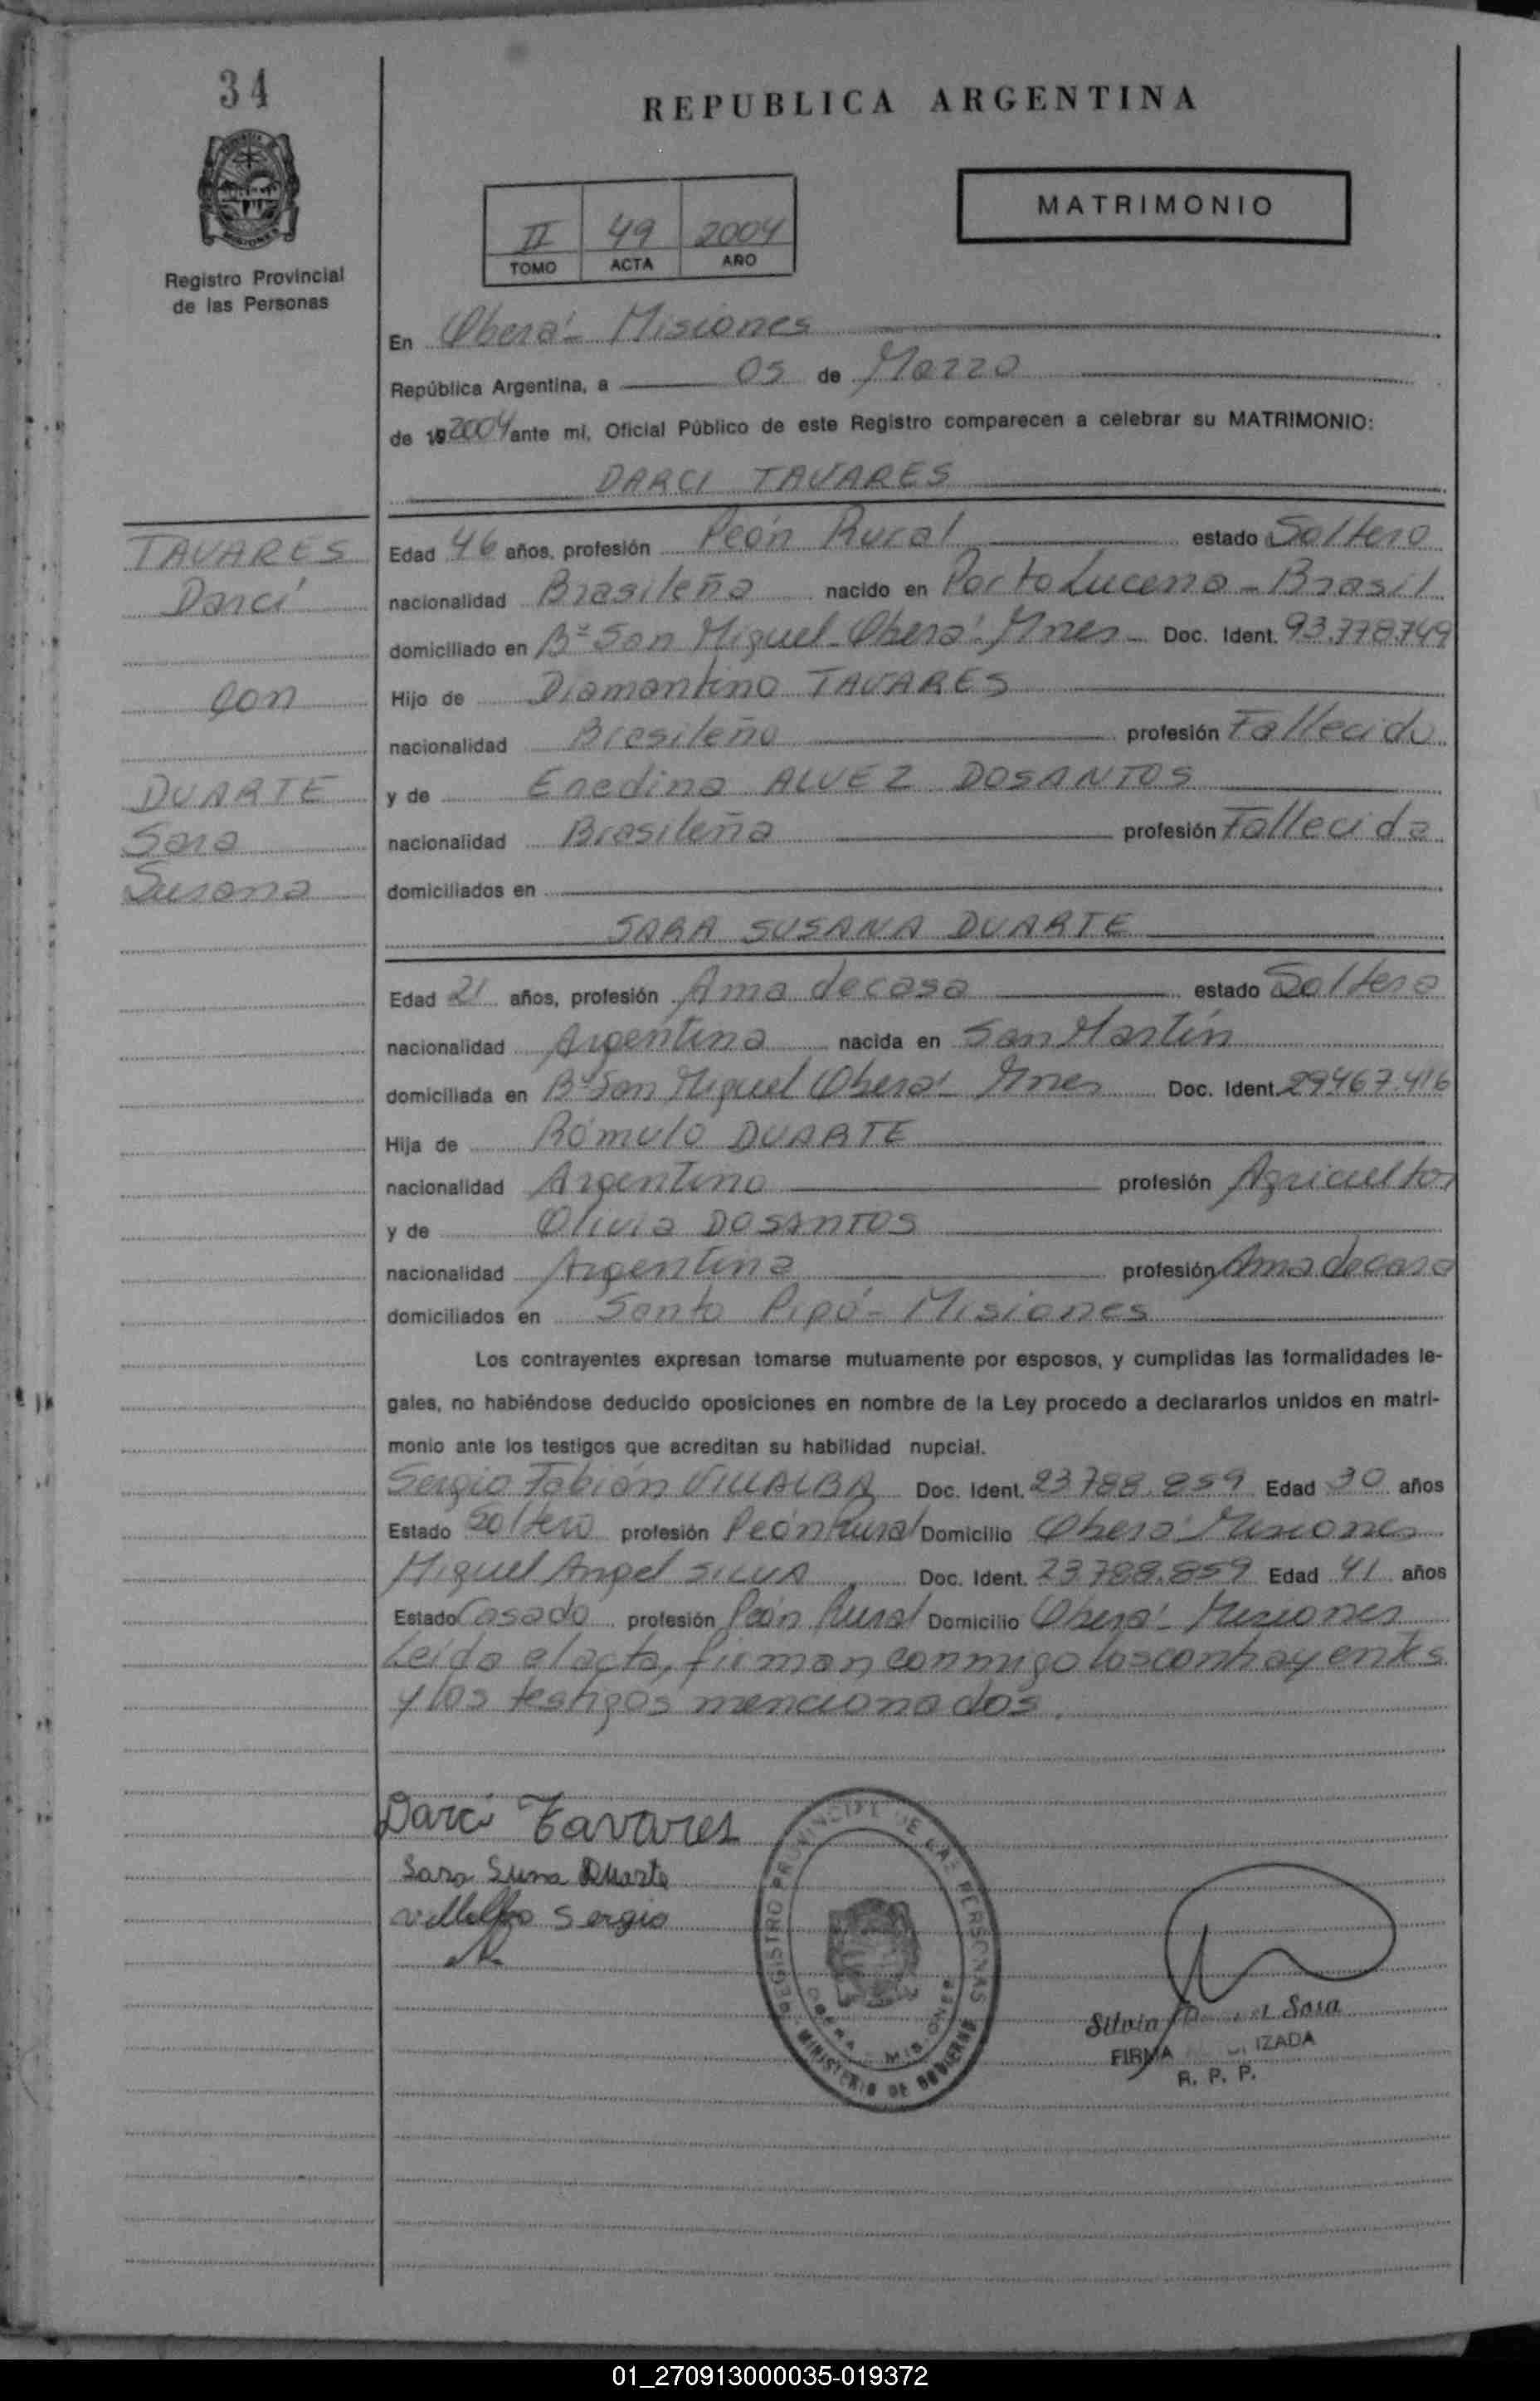 34
REPUBLICA ARGENTINA
MATRIMONIO
II 49 2004
TOMO ACTA AÑO
MISIONES
Registro Provincial
de las Personas
En Oberá - Misiones
República Argentina, a 05 de Marzo
de 192004 ante mí, Oficial Público de este Registro comparecen a celebrar su MATRIMONIO:
DARCI TAVARES
TAVARES
Darcí
con
DUARTE
Sara
Susana
Edad 46 años, profesión Peón Rural estado Soltero
nacionalidad Brasileña nacido en Porto Lucena - Brasil
domiciliado en Bº San Miguel - Oberá - Mnes - Doc. Ident. 93.778.749
Hijo de Diamantino TAVARES
nacionalidad Brasileño profesión Fallecido
y de Enedina ALVEZ DOSANTOS
nacionalidad Brasileña profesión Fallecida
domiciliados en
SARA SUSANA DUARTE
Edad 21 años, profesión Ama de casa estado Soltera
nacionalidad Argentina nacida en San Martín
domiciliada en Bº San Miguel Oberá - Mnes Doc. Ident. 29.467.416
Hija de Rómulo DUARTE
nacionalidad Argentino profesión Agricultor
y de Olivia DOSANTOS
nacionalidad Argentina profesión Ama de casa
domiciliados en Santo Pipó - Misiones
Los contrayentes expresan tomarse mutuamente por esposos, y cumplidas las formalidades le-
gales, no habiéndose deducido oposiciones en nombre de la Ley procedo a declararlos unidos en matri-
monio ante los testigos que acreditan su habilidad nupcial.
Sergio Fabián VILLALBA Doc. Ident. 23.788.859 Edad 30 años
Estado Soltero profesión Peón Rural Domicilio Oberá - Misiones
Miguel Angel SILVA Doc. Ident. 23.788.859 Edad 41 años
Estado Casado profesión Peón Rural Domicilio Oberá - Misiones
Leída el acta, firman conmigo los contrayentes
y los testigos mencionados.
Darci Tavares
Sara Susna Duarte
Villalba Sergio
REGISTRO PROVINCIAL DE LAS PERSONAS
OBERA - MISIONES
MINISTERIO DE GOBIERNO
Silvia Sosa
FIRMA
R. P. P.
01_270913000035-019372